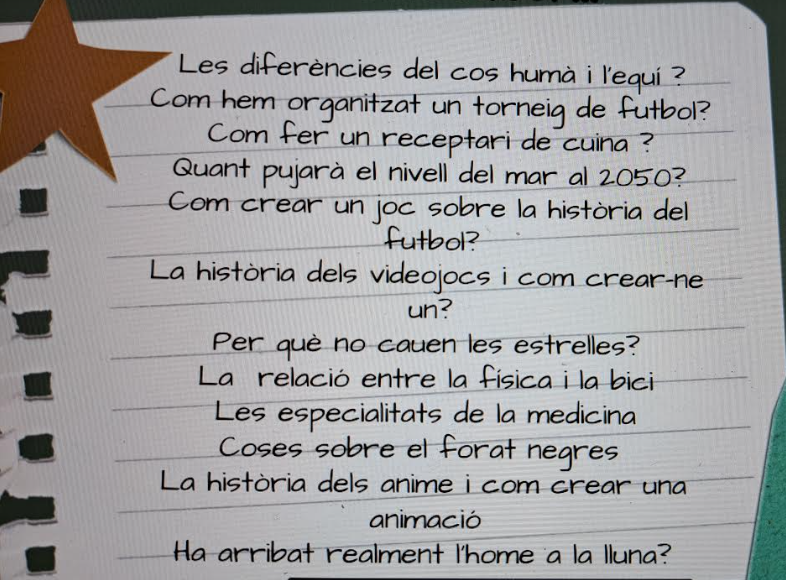 Les diferències del cos humà i l'equí ?
Com hem organitzat un torneig de futbol?
Com fer un receptari de cuina ?
Quant pujarà el nivell del mar al 2050?
Com crear un joc sobre la història del
futbol?
La història dels videojocs i com crear-ne
un?
Per què no cauen les estrelles?
La relació entre la física i la bici
Les especialitats de la medicina
Coses sobre el forat negres
La història dels anime i com crear una
animació
Ha arribat realment l'home a la lluna?